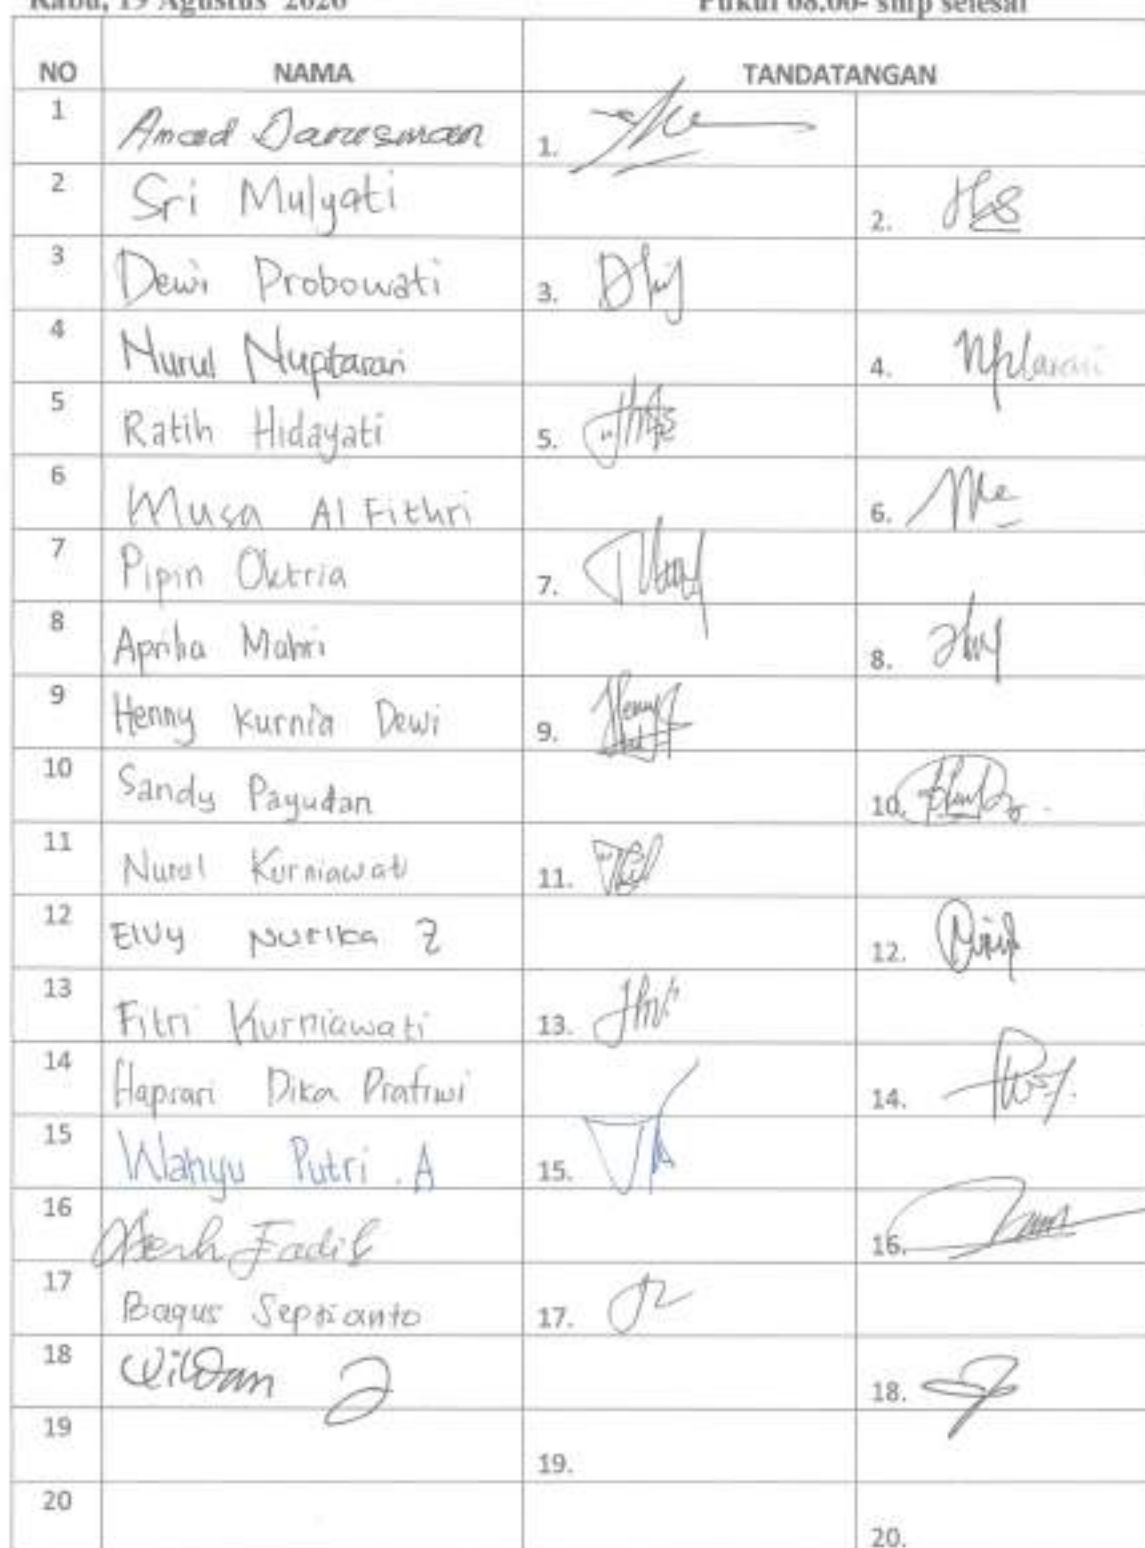 Rabu, 19 Agustus 2026 Pukul 08.00- smp selesai
NO NAMA TANDATANGAN
1 Amad 1.
2 Sri Mulyati 2.
3 Dewi Probowati 3.
4 Nurul Nuptarari 4.
5 Ratih Hidayati 5.
6 Musa Al Fithri 6.
7 Pipin Oktria 7.
8 Aprilia Mahri 8.
9 Henny Kurnia Dewi 9.
10 Sandy Payudan 10.
11 Nurul Kurniawati 11.
12 Elvy Nurika Z 12.
13 Fitri Kurniawati 13.
14 Haprari Dika Pratiwi 14.
15 Wahyu Putri . A 15.
16 Fadil 16.
17 Bagus Septianto 17.
18 Wildan J 18.
19 19.
20 20.